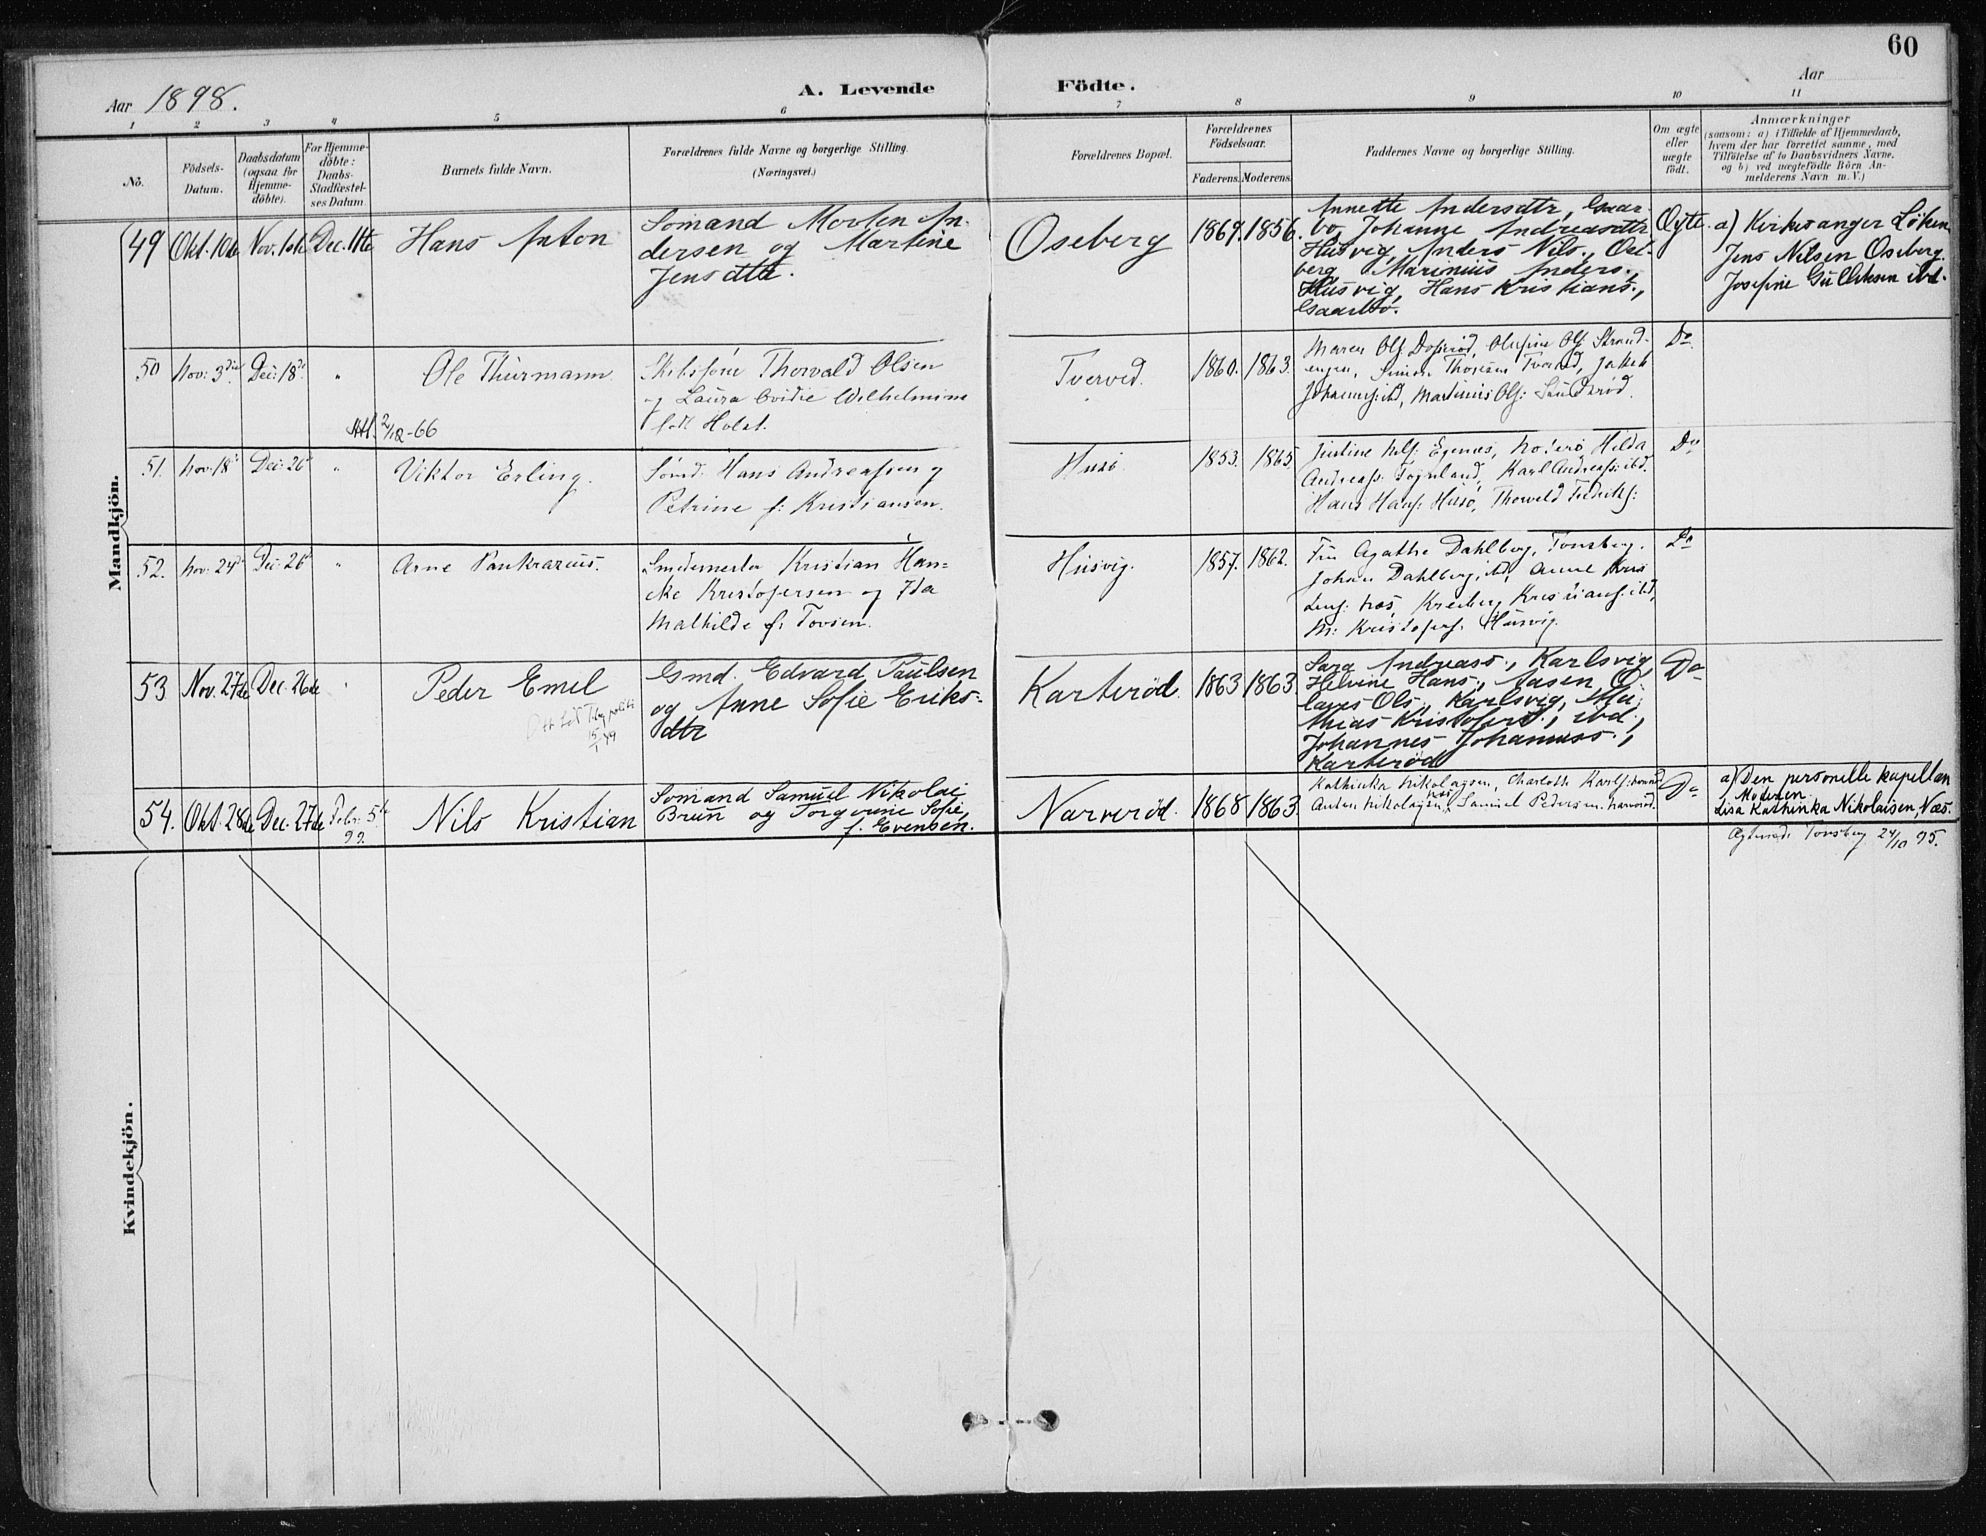 60
Aar 1898.
A. Levende
Födte.
Aar
1 2 3 4 5 6 7 8 9 10 11
No.
Födsels-
Datum.
Daabsdatum
(ogsaa for
Hjemme-
döbte).
For Hjemme-
döbte:
Daabs-
Stadfæstel-
ses Datum.
Barnets fulde Navn.
Forældrenes fulde Navne og borgerlige Stilling.
(Næringsvei.)
Forældrenes Bopæl.
Forældrenes
Födselsaar.
Faderens. Moderens.
Faddernes Navne og borgerlige Stilling.
Om ægte
eller
uægte
födt.
Anmærkninger
(saasom: a) i Tilfælde af Hjemmedaab,
hvem der har forrettet samme, med
Tilföielse af to Daabsvidners Navne,
og b) ved uægtefödte Börn An-
melderens Navn m. V.)
Mandkjön.
49 Okt. 10de Nov. 1ste Dec. 11te Hans Anton
Sömand Morten An-
dersen og Martine
Jensdtr.
Oseberg 1869. 1856.
Annette Andersdtr, Gaar-
bo, Johanne Andreasdtr
Husvig, Anders Nils., Ose-
berg, Marinius Anders.,
Husvig, Hans Kristians.,
Gaarbo.
Ægte.
a) Kirkesanger Löken
Jens Nilsen Oseberg.
Josefine Gulliksen ibd.
50 Nov: 3die Dec: 18de " Ole Thurmann
2/12-66
Skibsförer Thorvald Olsen
og Laura Ovidie Wilhelmine
født Holst.
Tverved. 1860. 1863.
Maren Ols: Olufine Ols: Strand-
engen, Simon Tverved, Jakob
Johanns: ibd, Martinius Ols:
Do
51. Nov. 18de Dec: 26de " Viktor Erling.
Sömd. Hans Andreassen og
Petrine f: Kristiansen.
Husö 1853. 1865.
Justine Nils: Egenes, Nøterø, Hilda
Andreass: Tojnland, Karl Andreass: ibd.
Hans Hans: Husö, Thorvald Fredriks:
Do
52. Nov. 24de Dec: 26de " Arne Pankrazius.
Smedemester Kristian Han-
cke Kristofersen og Ida
Mathilde f: Tovsen.
Husvig. 1857. 1862.
Fru Agathe Dahlberg, Tonsberg.
Johan Dahlberg, ibd, Anne Kris
tens: Næs, Kristians: ibd,
M: Kristofers: Husvig.
Do
53 Nov. 27de Dec. 26de " Peder Emil
15/1 49
Gmd. Edvard Paulsen
og Anne Sofie Eriks-
dtr
Karterød. 1863 1863.
Sara Andreass., Karlsvig,
Helvine Hans., Aasen, O-
laves Ols., Karlsvig, Ma-
thias Kristofers., ibd.,
Johannes Johanness.,
Karterød
Do
54. Okt. 28de Dec. 27de Febr. 5te
99.
Nils Kristian
Sömand Samuel Nikolai
Brun og Torgrine Sofie
f. Evensen.
Narverød. 1868 1863.
Kathinka Nikolaysen, Charlotte Karls:
Anton Nikolaysen, Næs, Samuel Pedersen. Narverød.
Do
a) Den personelle kapellan
Madsen.
Lisa Kathinka Nikolaisen, Næs.
Tonsberg 24/10 95.
Kvindekjön.